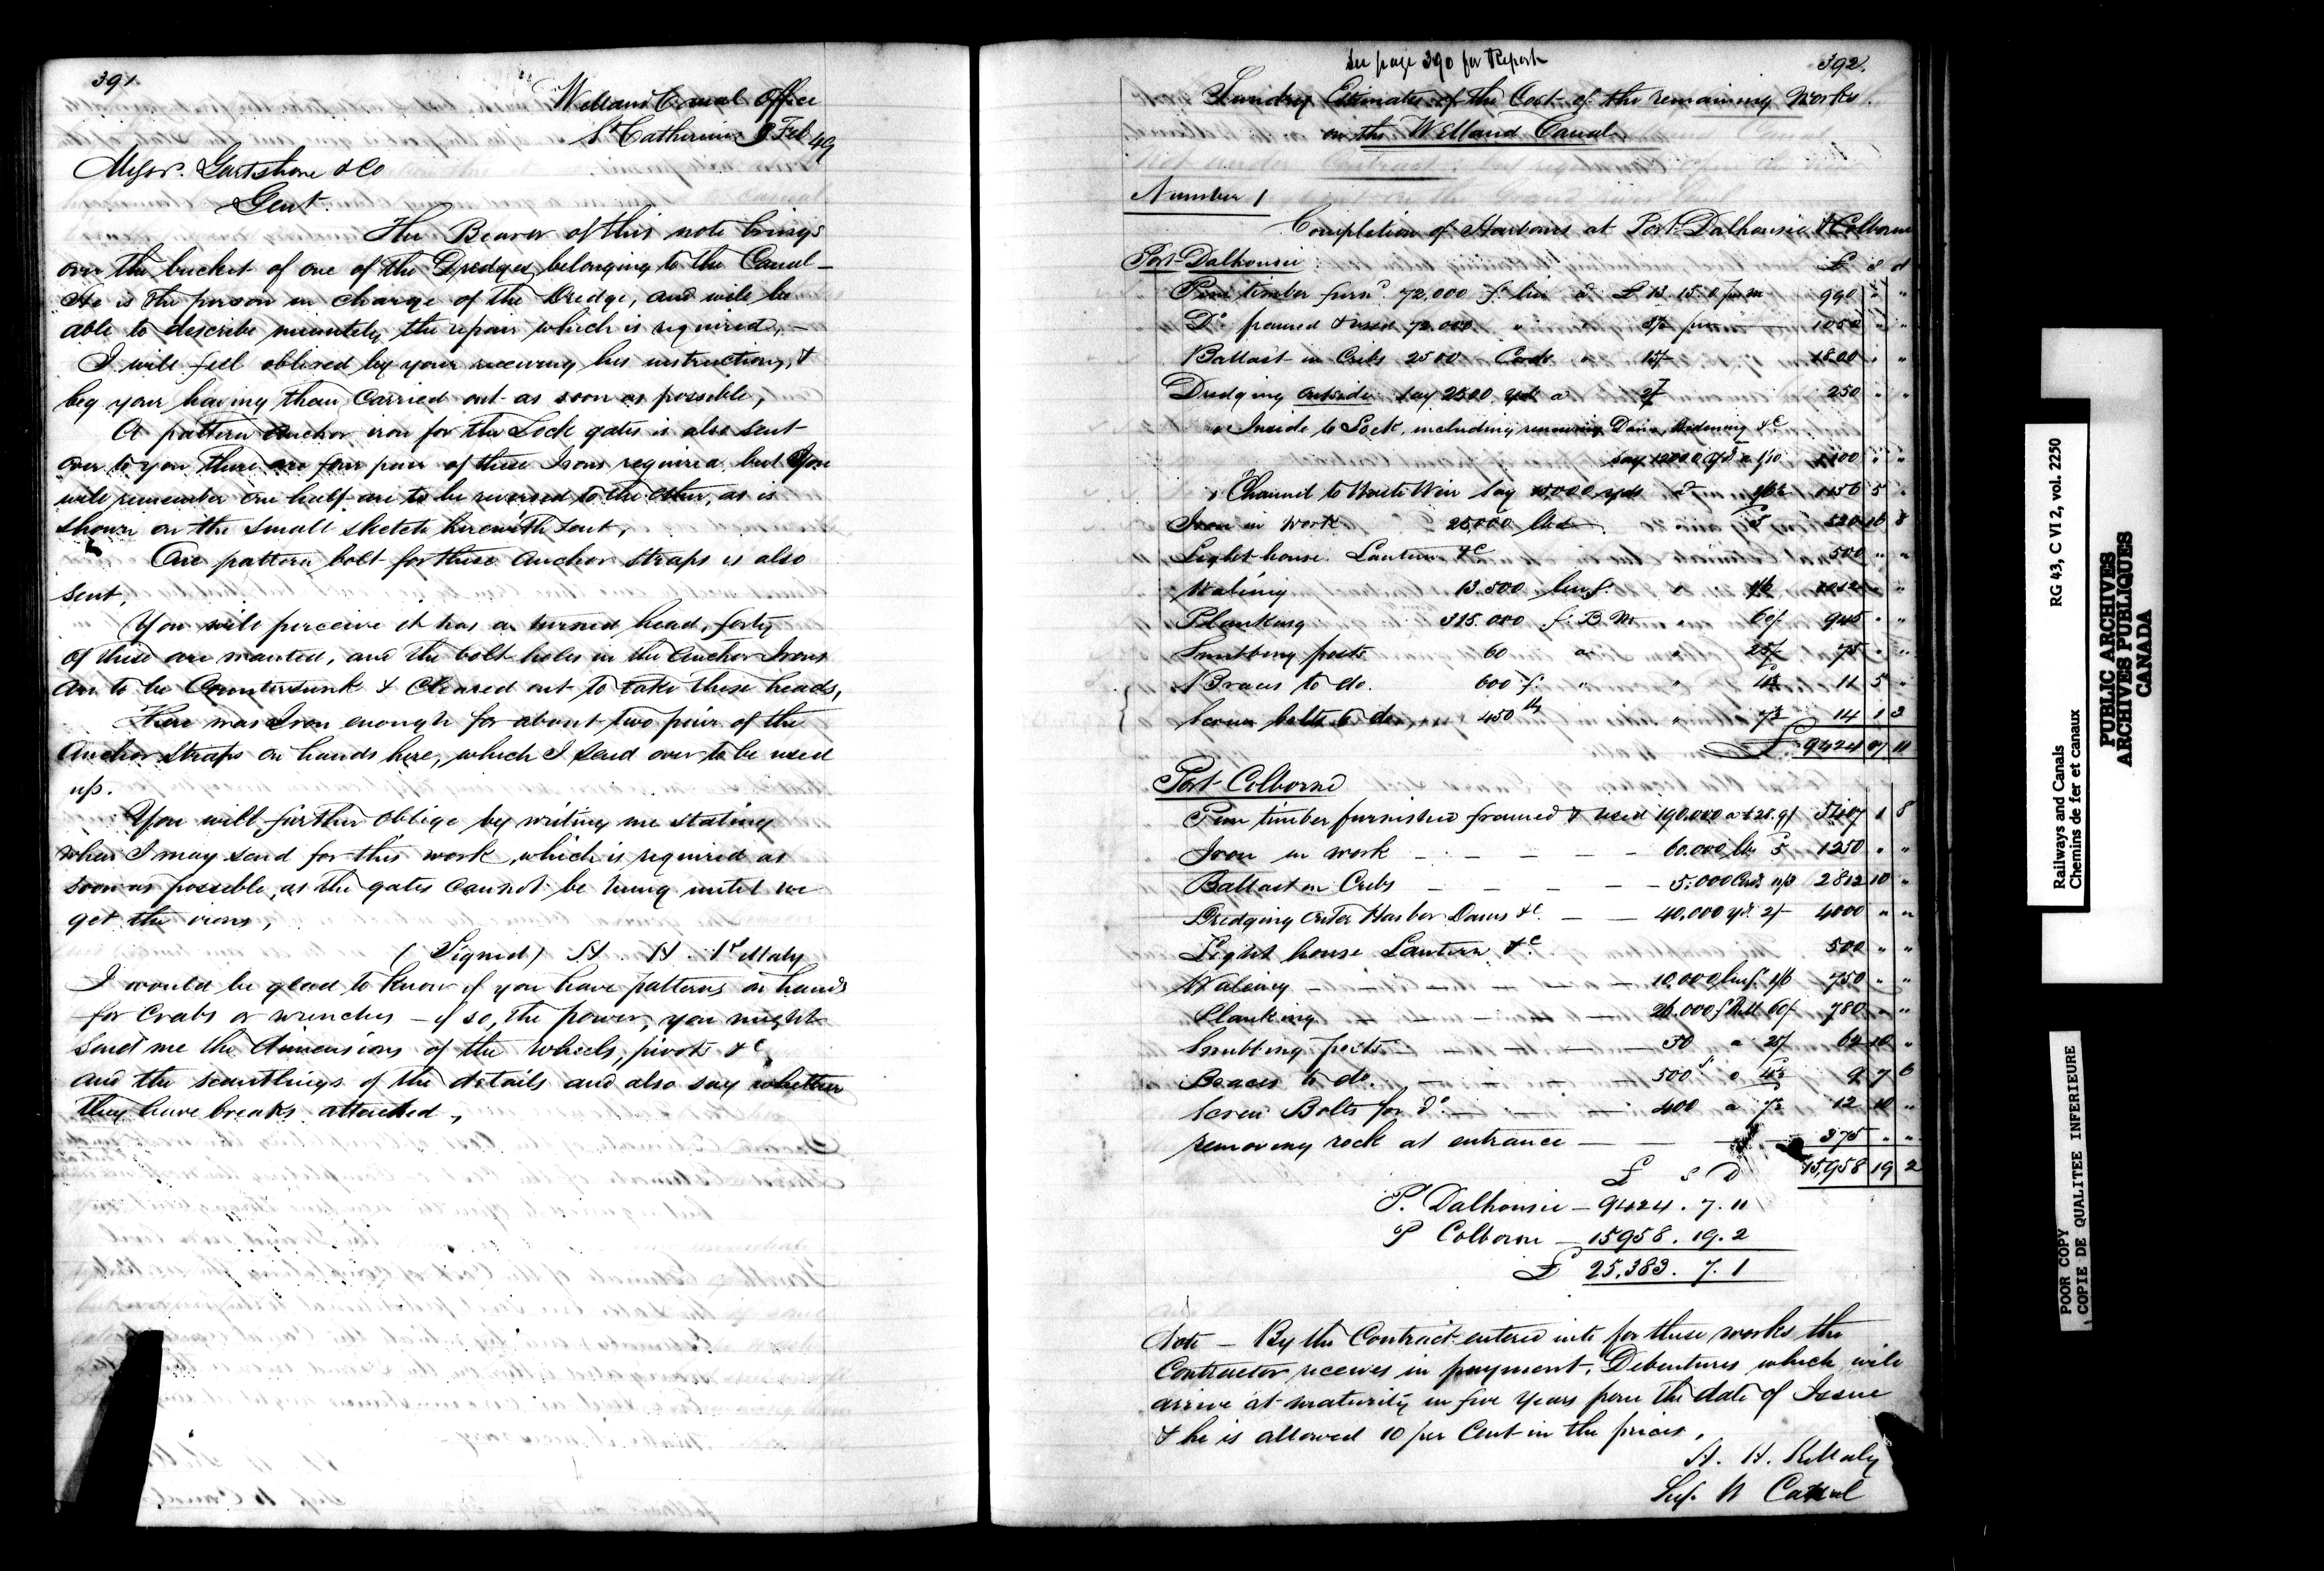 391
Welland Canal Office
St Catherines 9 Feb 49
Messrs. Gartshore & Co
Gent.
The Bearer of this note brings
over the bucket of one of the Dredges belonging to the Canal –
He is the person in charge of the Dredge, and will be
able to describe minutely the repair which is required, –
I will feel obliged by your receiving his instructions, &
beg your having them carried out as soon as possible,
A pattern Anchor iron for the Lock gates is also sent
over to you there are four pair of these Irons required, but You
will remember one half are to be reversed to the other, as is
shown on the small sketch herewith sent,
One pattern bolt for these Anchor Straps is also
sent,
You will perceive it has a turned head, forty
of these are wanted, and the bolt holes in the Anchor Irons
are to be Countersunk & Cleared out to take these heads,
There was Iron enough for about two pair of the
Anchor Straps on hands here, which I send over to be used
up.
You will further oblige by writing me stating
when I may send for this work, which is required as
soon as possible, as the gates cannot be hung until we
get the irons,
(Signed) H. H. Killaly
I would be glad to know if you have patterns on hands
for Crabs or wrenches – if so, the power, you might
send me the dimensions of the wheels, pivots &c
and the scantlings of the details and also say whether
they have breaks attached,
See page 390 for Report
392.
Sundry Estimates of the Cost of the remaining Works
on the Welland Canal
Number 1
Completion of Harbours at Port Dalhousie & Colborne
Port Dalhousie £ s d
Pine timber furnd. 72,000 f. lin a £ 13.15.0 per m 990 " "
Do framed & used 72,000 " " 1050 " "
Ballast in Cribs 2500 Cords " 15/- 1800 " "
Dredging outside say 2500 yds a 2/ 250 " "
" Inside to Lock, including removing Dam, Widening &c
say 12000 yds a 1/10 1100 " "
" Channel to Waste Weir say 15,000 yds a 1/6½ 1156 5 "
Iron in work 25,000 lbs 5 520 16 8
Light house Lantern &c 500 " "
Waleing 13.500 lin f. " 1/6 1012 " "
Planking 315.000 f. B M " 60/ 945 " "
Snubbing posts 60 a " 25/ 75 " "
Braces to do. 600 f. " " 4½ 11 5 "
Screw bolts to do. 450 lb " 7½ 14 1 3
£ 9424 07 11
Port Colborne
Pine timber furnished framed & used 190.000 a £28.9/ 5407 1 8
Iron in work – – – – – 60.000 lbs 5 1250 " "
Ballast in Cribs – – – – – 5.000 Cords 11/3 2812 10 "
Dredging Outer Harbor Dams &c. – – 40.000 yds. 2/- 4000 " "
Light house Lantern &c. 500 " "
Waleing – – – – 10.000 lin f. 1/6 750 " "
Planking – – – 26.000 f BM 60/ 780 " "
Snubbing posts – – – 30 a 25/ 62 10 "
Braces to do. – – – 500 f a 4½ 9 7 6
Screw Bolts for do. – – – 400 a 7½ 12 10 "
removing rock at entrance – – – 375 " "
15,958 19 2
£ s D
P. Dalhousie – 9424. 7. 11
P Colborne – 15958. 19. 2
£ 25.383. 7. 1
Note – By the Contract entered into for these works the
Contractor receives in payment, Debentures which will
arrive at maturity in five Years from the date of Issue
& he is allowed 10 per Cent in the prices,
H. H. Killaly
Sup. W Canal
RG 43, C VI 2, vol. 2250
Railways and Canals
Chemins de fer et canaux
PUBLIC ARCHIVES
ARCHIVES PUBLIQUES
CANADA
POOR COPY
COPIE DE QUALITEE INFERIEURE